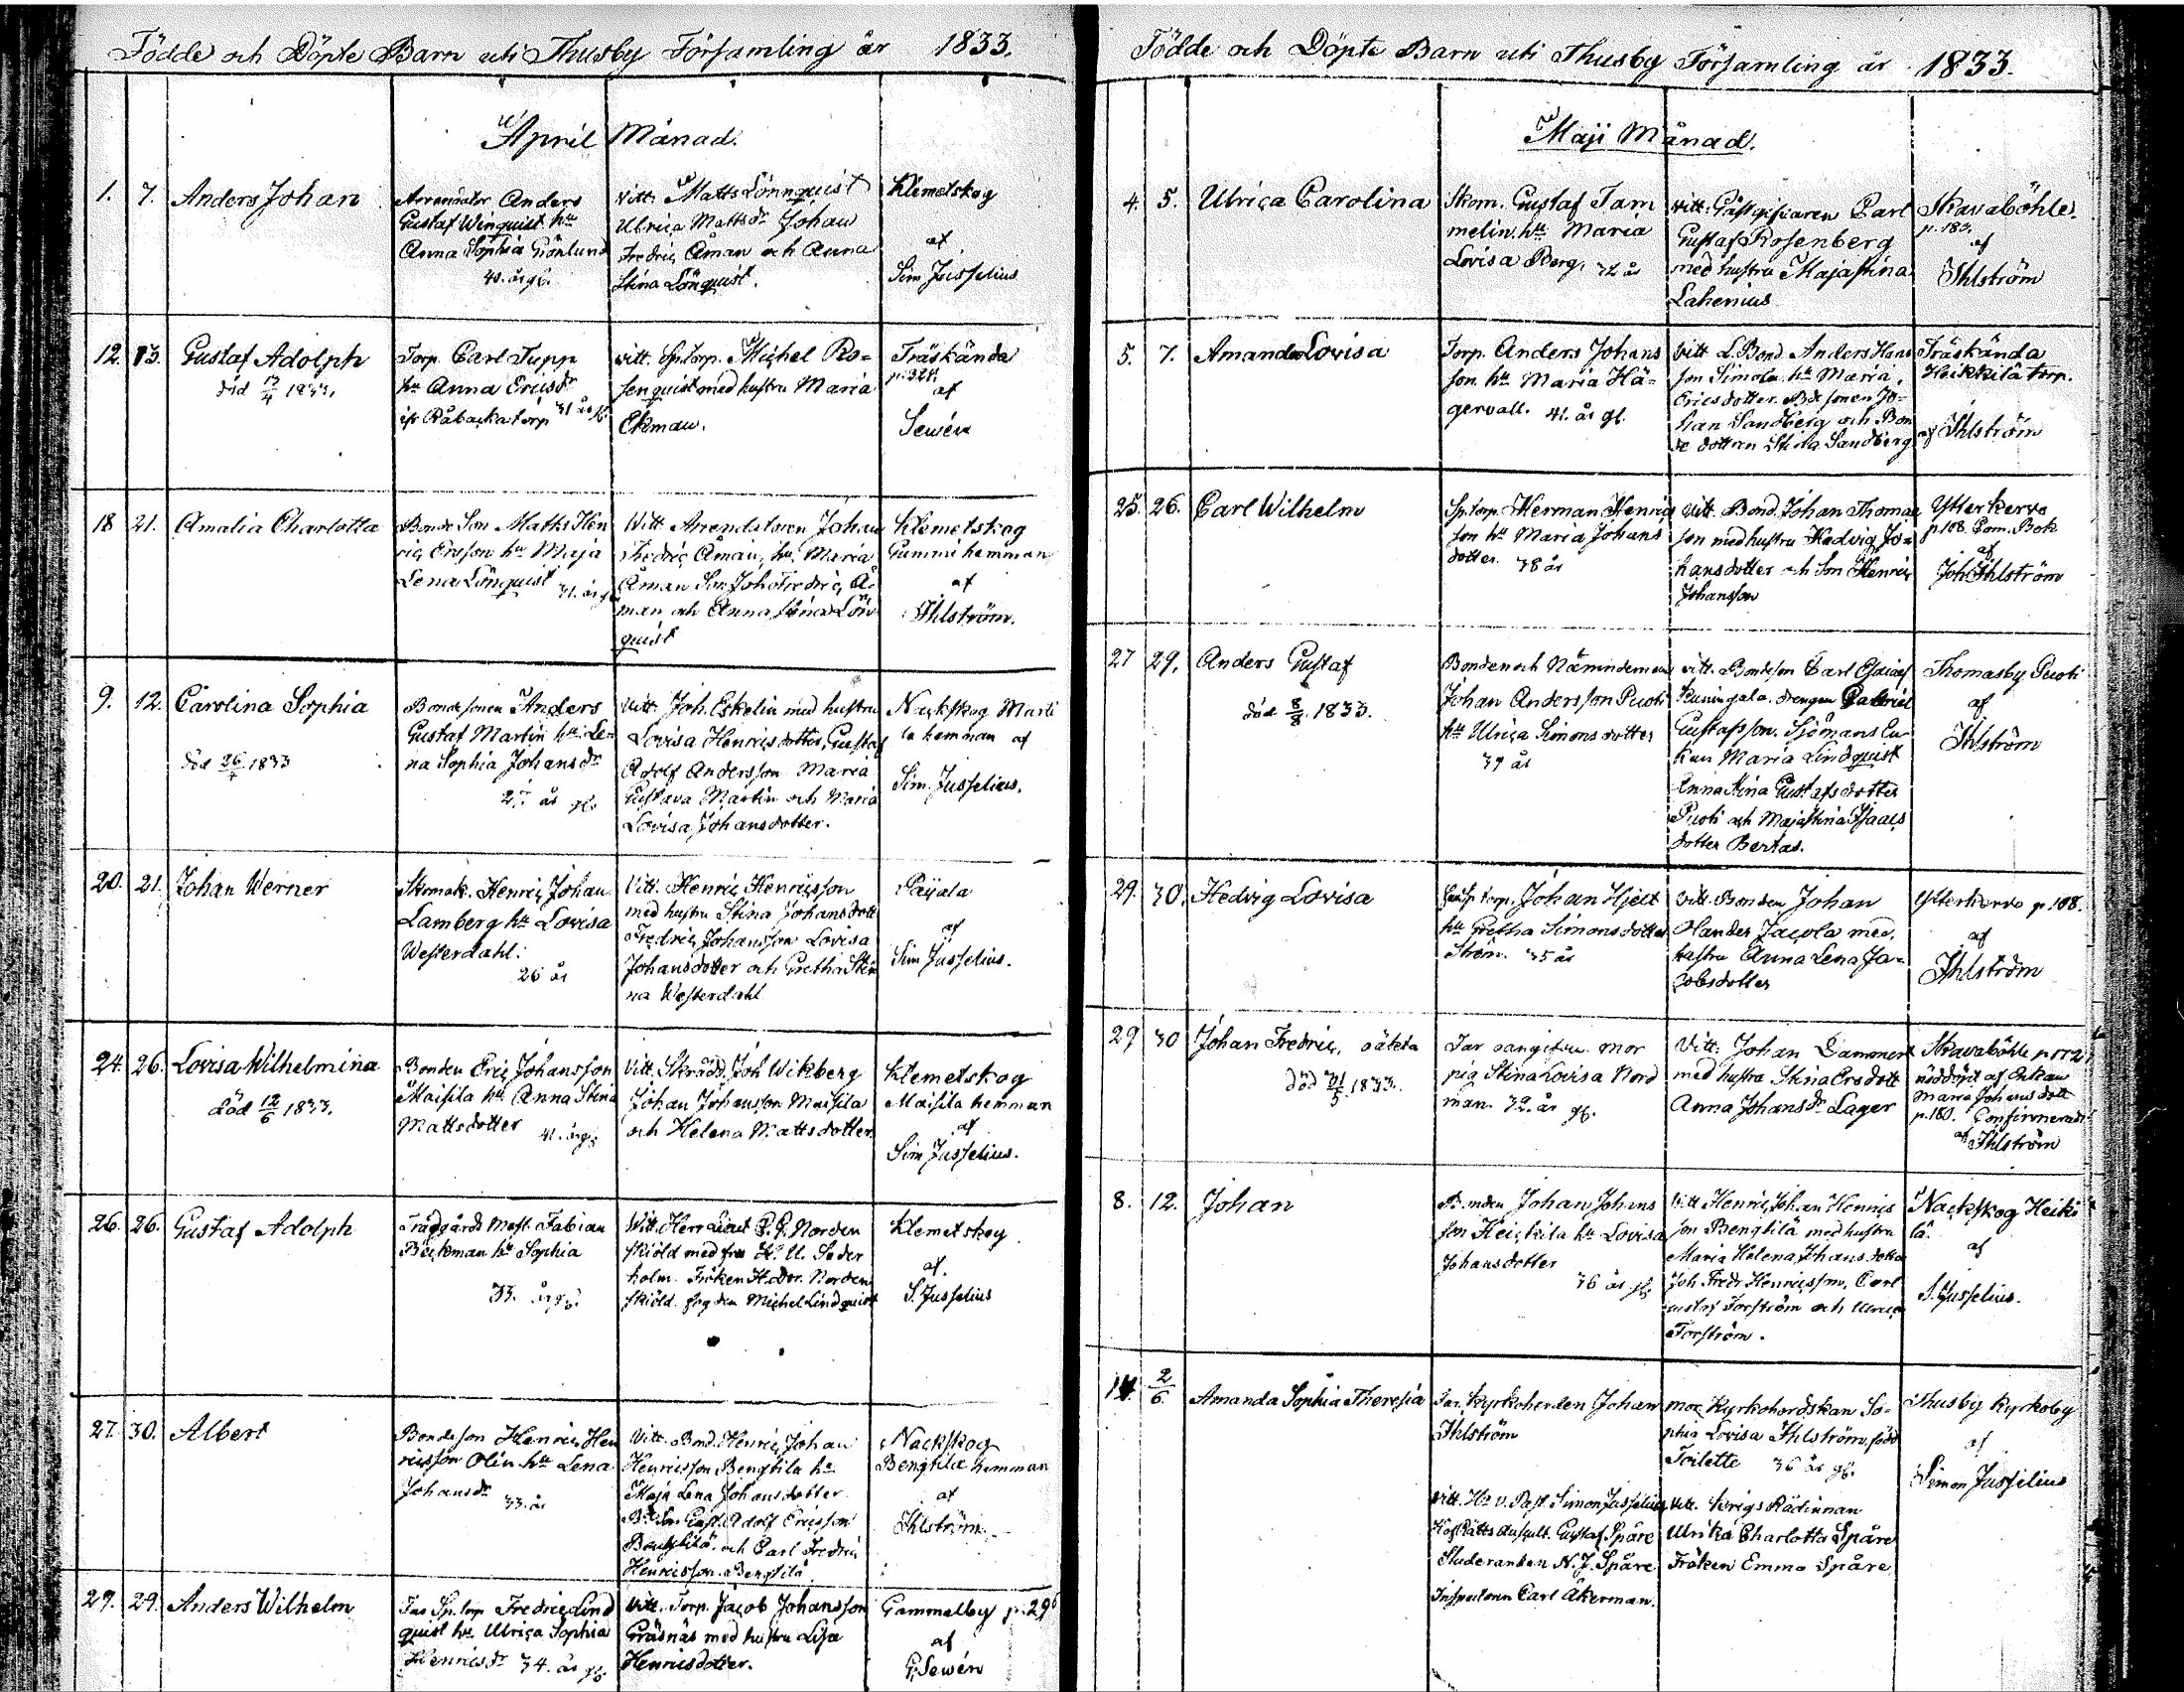 Födde och Döpte Barn uti Thusby Församling år 1833.
April Månad.
1. 7. Anders Johan
Arrendator Anders
Gustaf Winquist hu
Anna Sophia Grönlund
40. år gl.
vitt. Matts Lönnquist
Ulrica Mattsdr Johan
Fredric Åman och Anna
Stina Lönquist.
Klemetskog
af
Sim Jusselius
12. 13. Gustaf Adolph
död 13/4 1833.
Torp. Carl Tupp
hu Anna Ericsdr
Råbacka torp 31 år gl.
vitt. Sp. torp. Michel Ro=
senquist med hustru Maria
Ekman.
Träskända
p. 321.
af
Sewén
18 21. Amalia Charlotta
Bonde Son Matts Hen
ric Ersson hu Maja
Lena Lönquist 31. år gl
Witt. Arrendatoren Johan
Fredric Åman, hu. Maria
Åman Son Joh Fredric Å=
man och Anna Stina Lön
quist
Klemetskog
Gummi hemman
af
Ihlström.
9. 12. Carolina Sophia
död 26/4 1833
Bondesonen Anders
Gustaf Martin hu Le=
na Sophia Johansdr
27 år gl.
Vitt. Joh. Eskelin med hustru
Lovisa Henricsdotter, Gustaf
Adolf Andersson Maria
Gustava Martin och Maria
Lovisa Johansdotter.
Nackskog Marti
la hemman af
Sim. Jusselius.
20. 21. Johan Werner
Skomak. Henric Johan
Lamberg hu Lovisa
Westerdahl.
26 år
Vitt. Henric Henricsson
med hustru Stina Johansdott
Fredric Johansson Lovisa
Johansdotter och Gretha Sti
na Westerdahl
Paijala
af
Sim Jusselius.
24. 26. Lovisa Wilhelmina
död 12/6 1833.
Bonden Eric Johansson
Maisila hu Anna Stina
Mattsdotter 41. år gl.
Vitt. Skrädd. Joh Wikberg
Johan Johansson Maisila
och Helena Mattsdotter
Klemetskog
Maisila hemman
af
Sim Jusselius.
26. 26. Gustaf Adolph
Trädgårds Mäst. Fabian
Beckman hu Sophia
33. år gl.
Witt. Herr Lieut. Norden
skiöld med fru H. U. Seder
holm. Fröken H. Dor. Norden
skiöld. Michel Lindquist
Klemetskog
af.
S. Jusselius
27. 30. Albert
Bondeson Henric Hen
ricsson Olin hu Lena
Johansdr 33. år
Vitt. Bond. Henric Johan
Henricsson Bengtila hu
Maja Lena Johansdotter
B. Son Gust. Adolf Ericsson
Bengtilä och Carl Fredric
Henricsson Bengtilä.
Nackskog
Bengtilä hemman
af
Ihlström
29. 29. Anders Wilhelm
Far Sp. torp Fredric Lind
quist hu. Ulrica Sophia
Henricsdr 34. år gl.
Vitt. Torp. Jacob Johansson
Gräsnäs med hustru Lisa
Henricsdotter.
Gammelby p. 296
af
G. Sewén
Födde och Döpte Barn uti Thusby Församling år 1833.
Maji Månad.
4. 5. Ulrica Carolina
Skom. Gustaf Tam
melin. hu Maria
Lovisa Berg. 32 år
vitt. Gästgifvaren Carl
Gustaf Rosenberg
med hustru Maja Stina
Lahenius
Skavaböhle
p. 183.
af
Ihlström
5. 7. Amanda Lovisa
Torp. Anders Johans
son hu Maria Hä=
gervall. 41. år gl.
Vitt L. Bond. Anders Hans
son Simola hu Maria
Ericsdotter. Bdesonen Jo=
han Sandberg och Bon
de dottren Stina Sandberg
Träskända
Heikkilä torp.
af Ihlström
25. 26. Carl Wilhelm
Sp. torp. Herman Henrics
son hu Maria Johans
dotter. 38 år
Vitt. Bond. Johan Thomas
son med hustru Hedvig Jo=
hansdotter och Son Henric
Johansson
Ytterkervo
p. 108. Com. Bok
af
Joh Ihlström
27 29. Anders Gustaf
död 8/8. 1833.
Bonden och Nämndeman
Johan Andersson Puoti
hu Ulrica Simonsdotter
39 år
vitt. Bondeson Carl
Kuningala. drengen Gabriel
Gustafsson. Sjömans En
kan Maria Lindquist
Anna Stina Gustafsdotter
Puoti och Maja Stina Isaacs
dotter Bertas.
Thomasby Puoti
af
Ihlström
29. 30. Hedvig Lovisa
torp. Johan Hjelt
hu Gretha Simonsdotter
Ström. 35 år
Vitt. Bonden Johan
Olander Jacola med
hustru Anna Lena Ja=
cobsdotter
Ytterkervo p. 108.
af
Ihlström
29 30 Johan Fredric, oäkta
död 31/5. 1833.
Far oangifven. mor
pig. Stina Lovisa Nord
man. 32. år gl.
Vitt: Johan Dammert
med hustru Stina Ersdott
Anna Johansdr Lager
Skavaböhle p. 172
nöddöpt af Enkan
Maria Johansdott
p. 180. Confirmeradt
af Ihlström
8. 12. Johan
Bonden Johan Johans
son Heickila hu Lovisa
Johansdotter
36 år gl.
Vitt Henric Johan Henrics
son Bengtilä med hustru
Maria Helena Johansdotter
Joh Fredr Henricsson, Carl
Gustaf Forsström och Ulrica
Forsström.
Nackskog Heiki
lä.
af
S. Jusselius.
14. 2/6. Amanda Sophia Theresia
Far. Kyrkoherden Johan
Ihlström
vitt. Hr v. Past. Simon Jusselius
Hof Rätts Auscult. Gustaf Spåre
Studeranden N. J. Spåre
Inspectoren Carl Åkerman.
mor Kyrkoherdskan So=
phia Lovisa Ihlström, född
Toilette 36 år gl.
Vitt. Krigs Rådinnan
Ulrika Charlotta Spåre
Fröken Emma Spåre
Thusby kyrkoby
af
Simon Jusselius